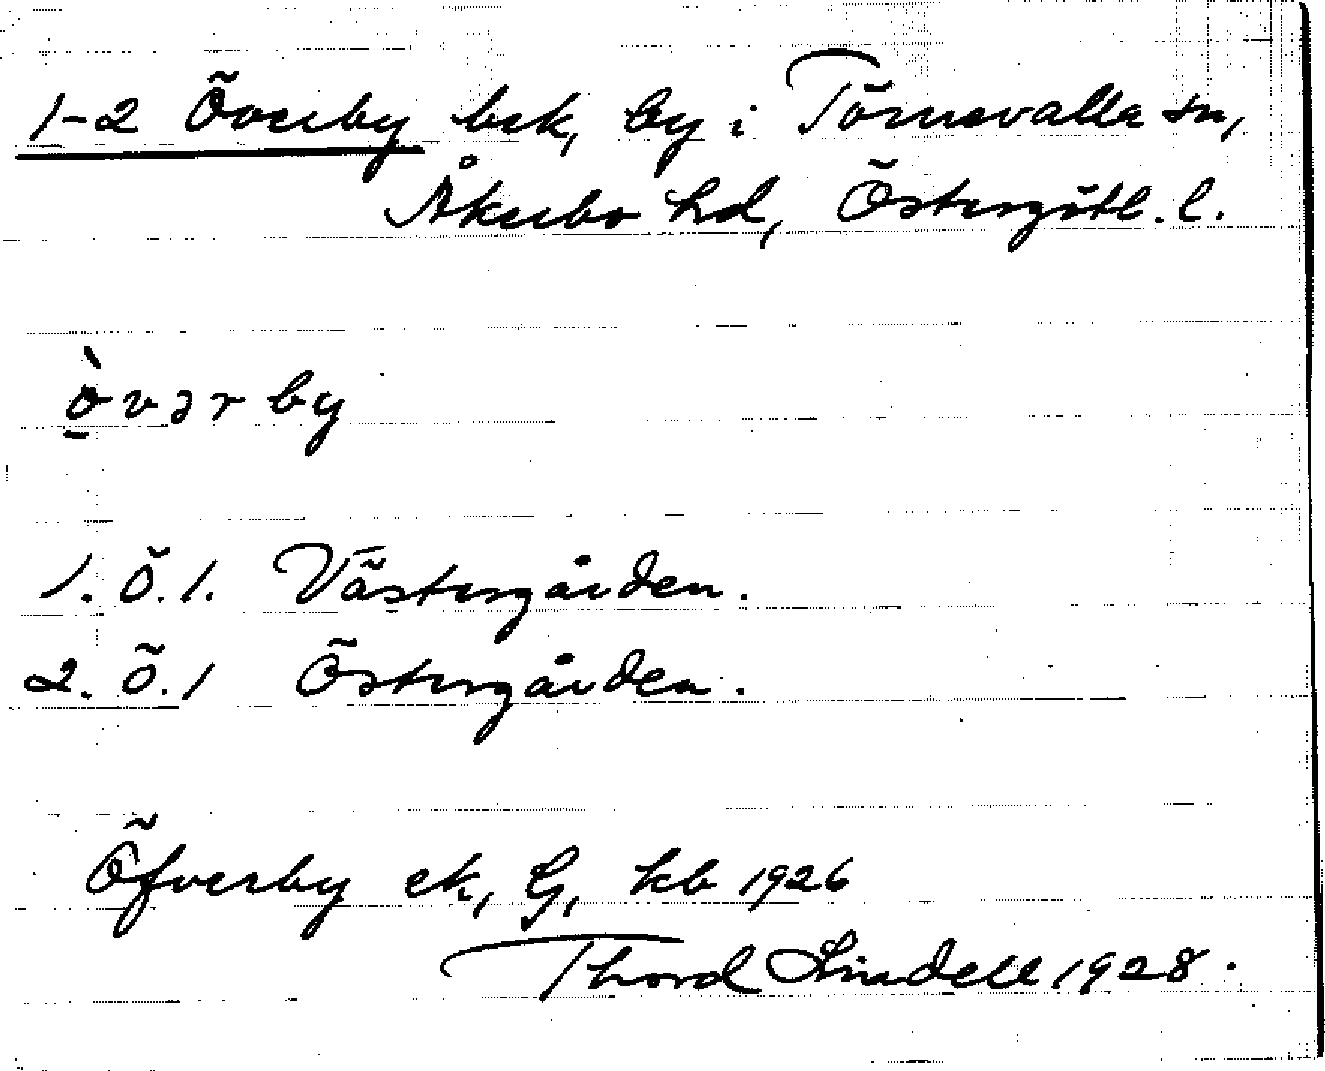 1-2 Överby bek, by i Törnevalla sn,
Åkerbo hd, Östergötl. l.
ö̀vərby
1. Ö. 1. Västergården.
2. Ö. 1 Östergården.
Öfverby ek, G, kb 1926
Thord Lindell 1928.